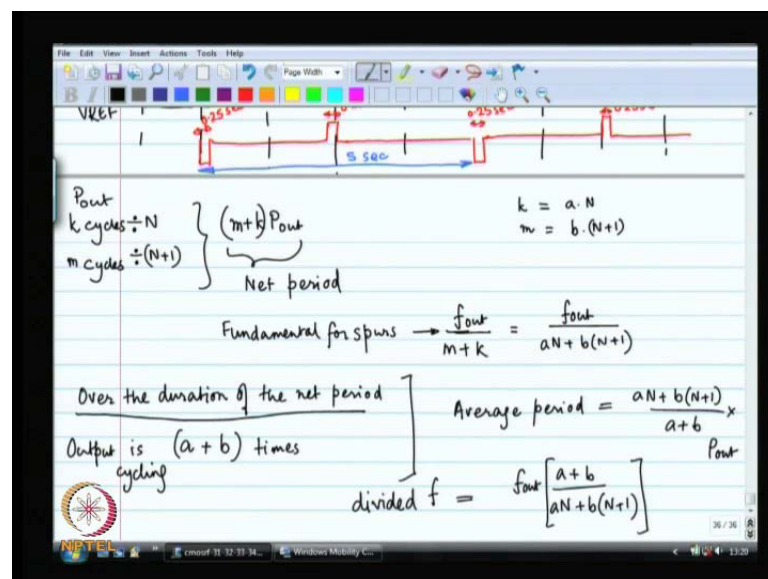 File Edit View Insert Actions Tools Help
Page Width
B I
VREF
0.25 sec
0.25 sec
5 sec
Pout
k cycles ÷ N
m cycles ÷ (N+1)
(m+k) Pout
Net period
k = a.N
m = b.(N+1)
Fundamental for spurs → fout / m+k = fout / aN + b(N+1)
Over the duration of the net period
Output is (a + b) times
cycling
Average period = aN + b(N+1) / a+b × Pout
divided f = fout [a + b / aN + b(N+1)]
36 / 36
NPTEL
cmosrf-31-32-33-34...
Windows Mobility C...
13:20